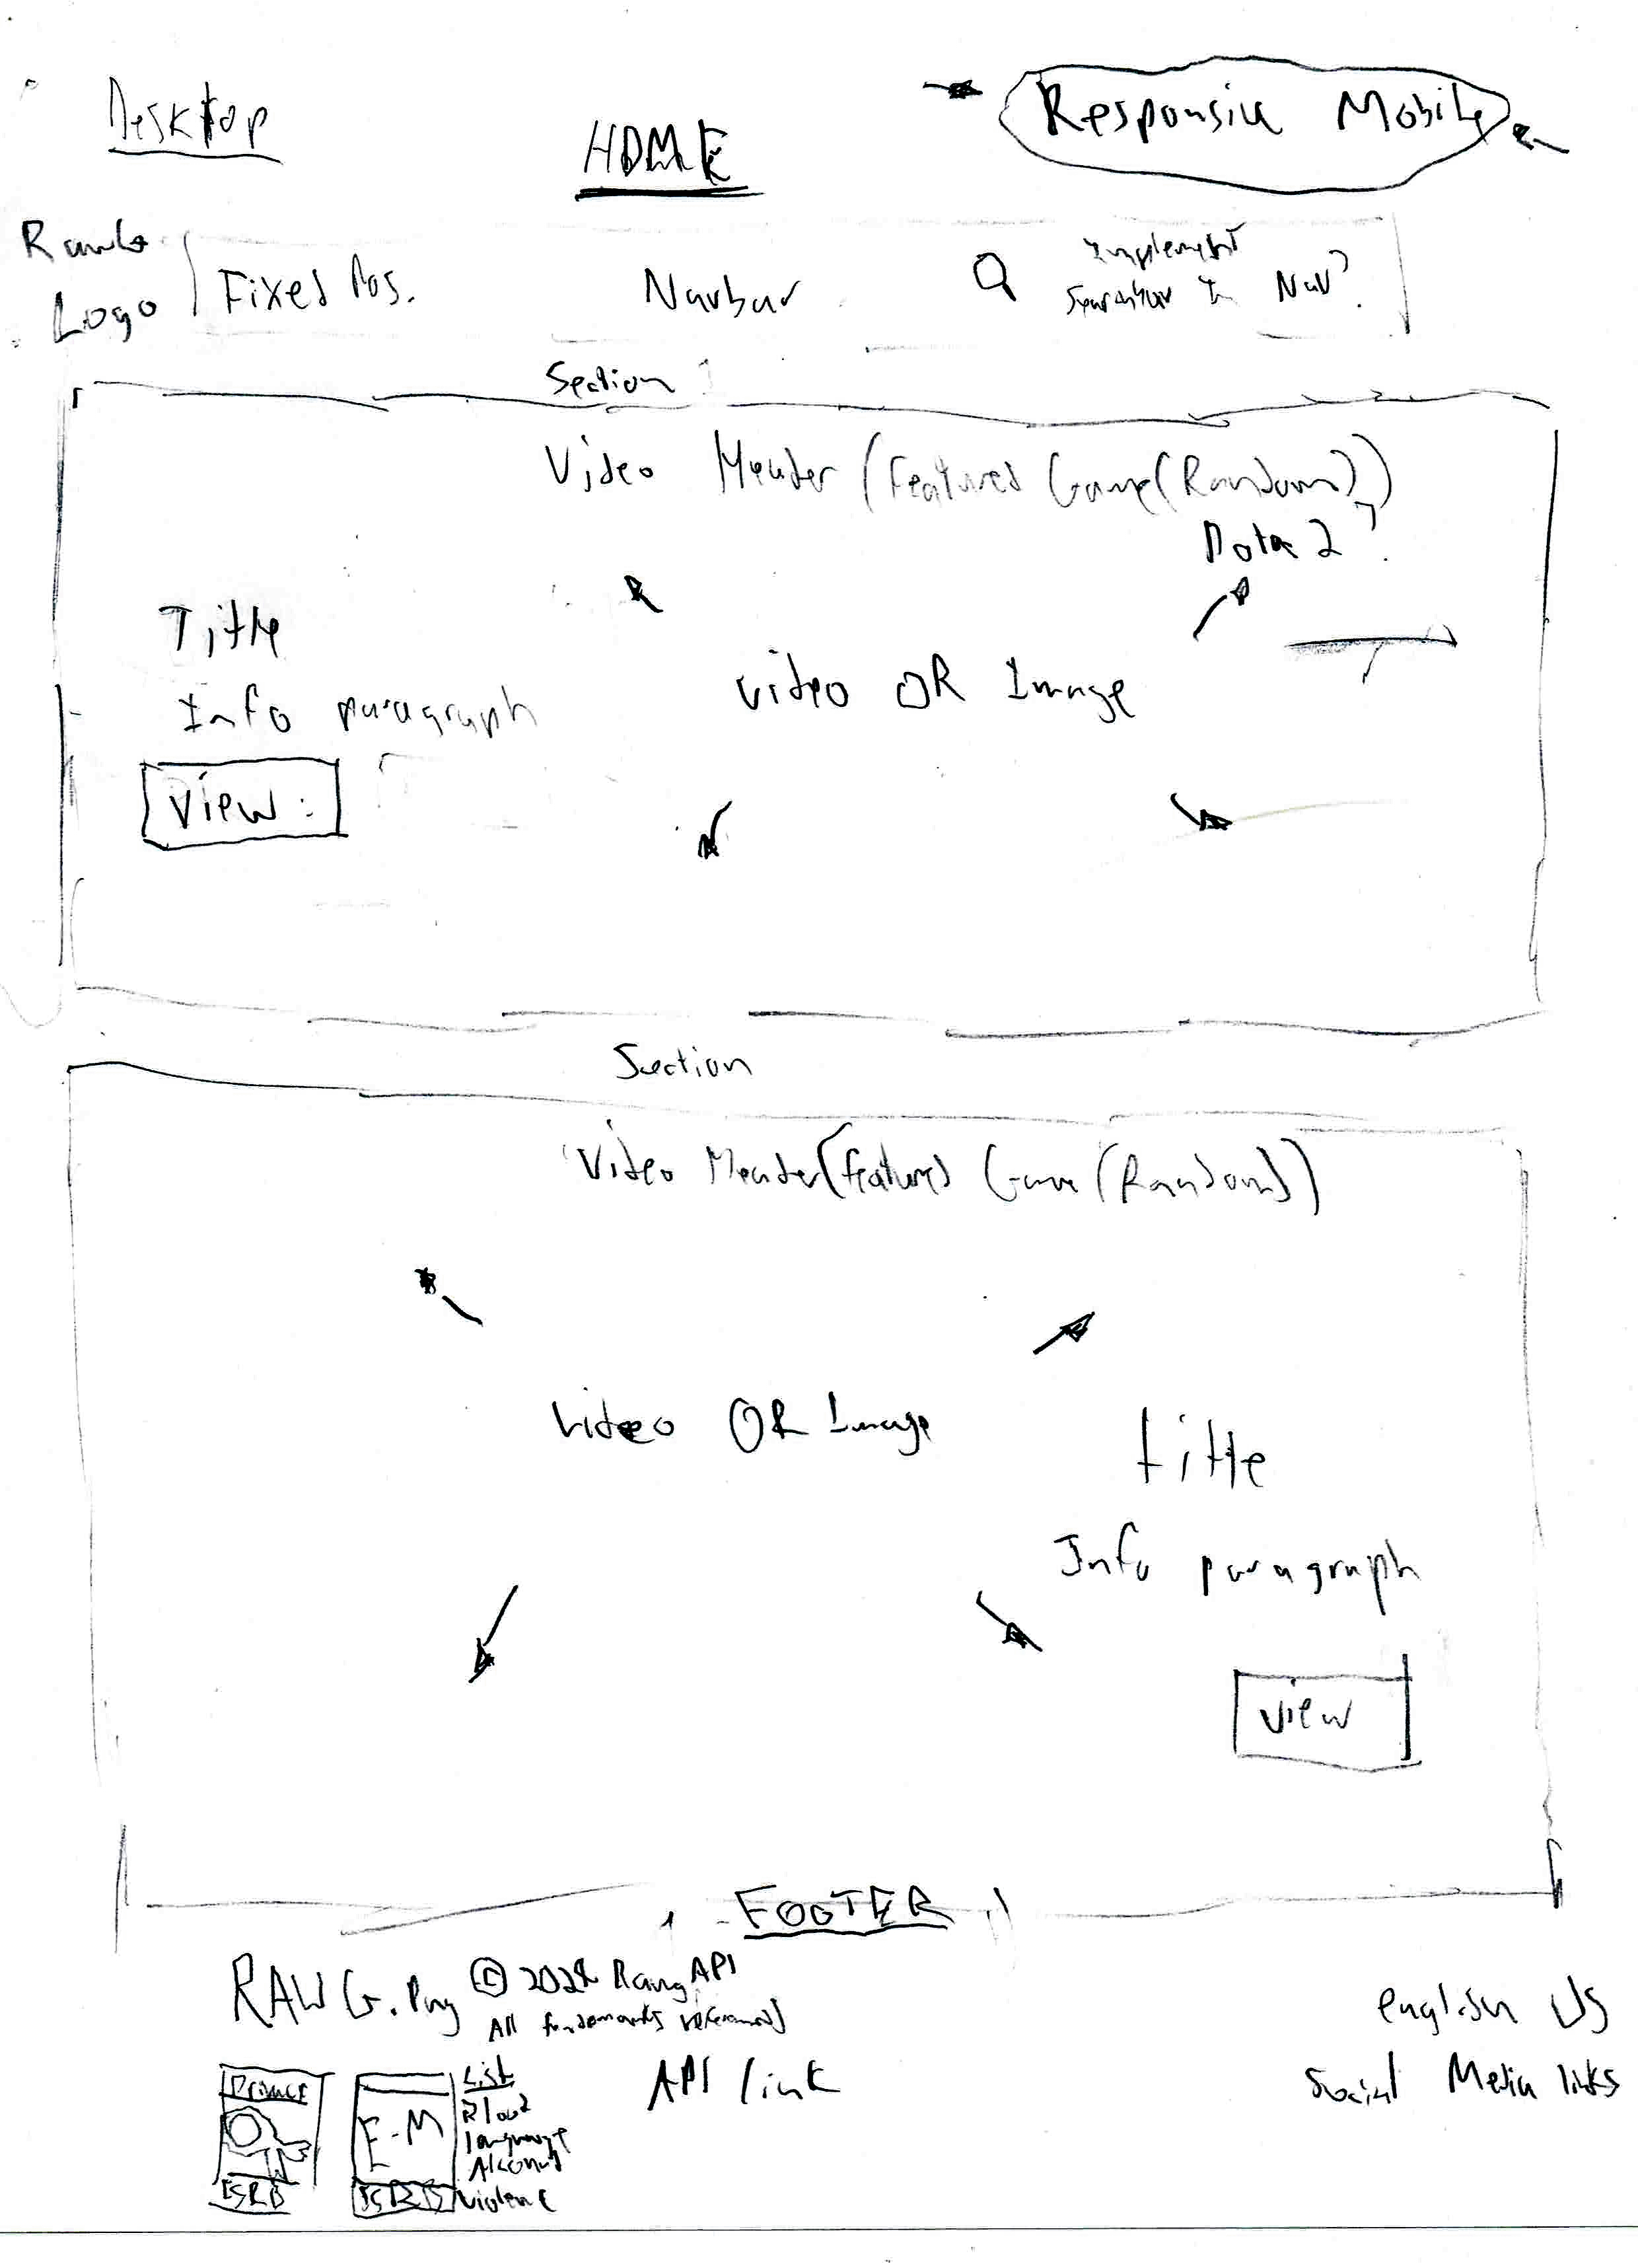 Desktop
HOME
Responsive Mobile
Logo
Fixed Pos.
Navbar
Implement
Searchbar In Nav?
Section
Video Header (Featured Game(Random))
Dota 2?
Title
Info paragraph
Video OR Image
View
Section
Video Header(Featured Game(Random))
Video OR Image
title
Info paragraph
View
FOOTER
RAWG.Png © Rawg API
All reserved
API link
english US
Social Media links
Privacy
ESRB
E-M
ESRB
List
Blood
language
Alcohol
violence